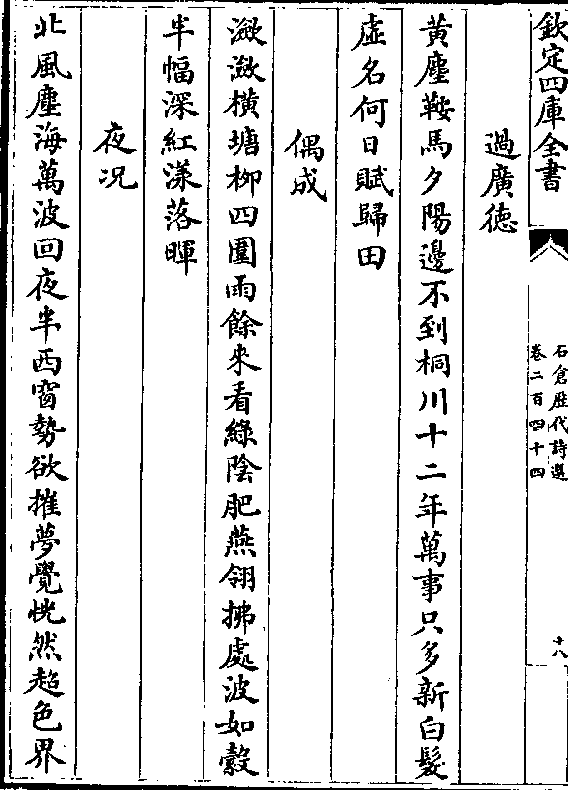 欽定四庫全書
石倉歷代詩選
卷二百四十四
十八
過廣德
黃塵鞍馬夕陽邊不到桐川十二年萬事只多新白髮
虛名何日賦歸田
偶成
瀲瀲橫塘柳四圍雨餘來看綠陰肥燕翎拂處波如縠
半幅深紅漾落暉
夜况
北風塵海萬波回夜半西窗勢欲摧夢覺恍然超色界